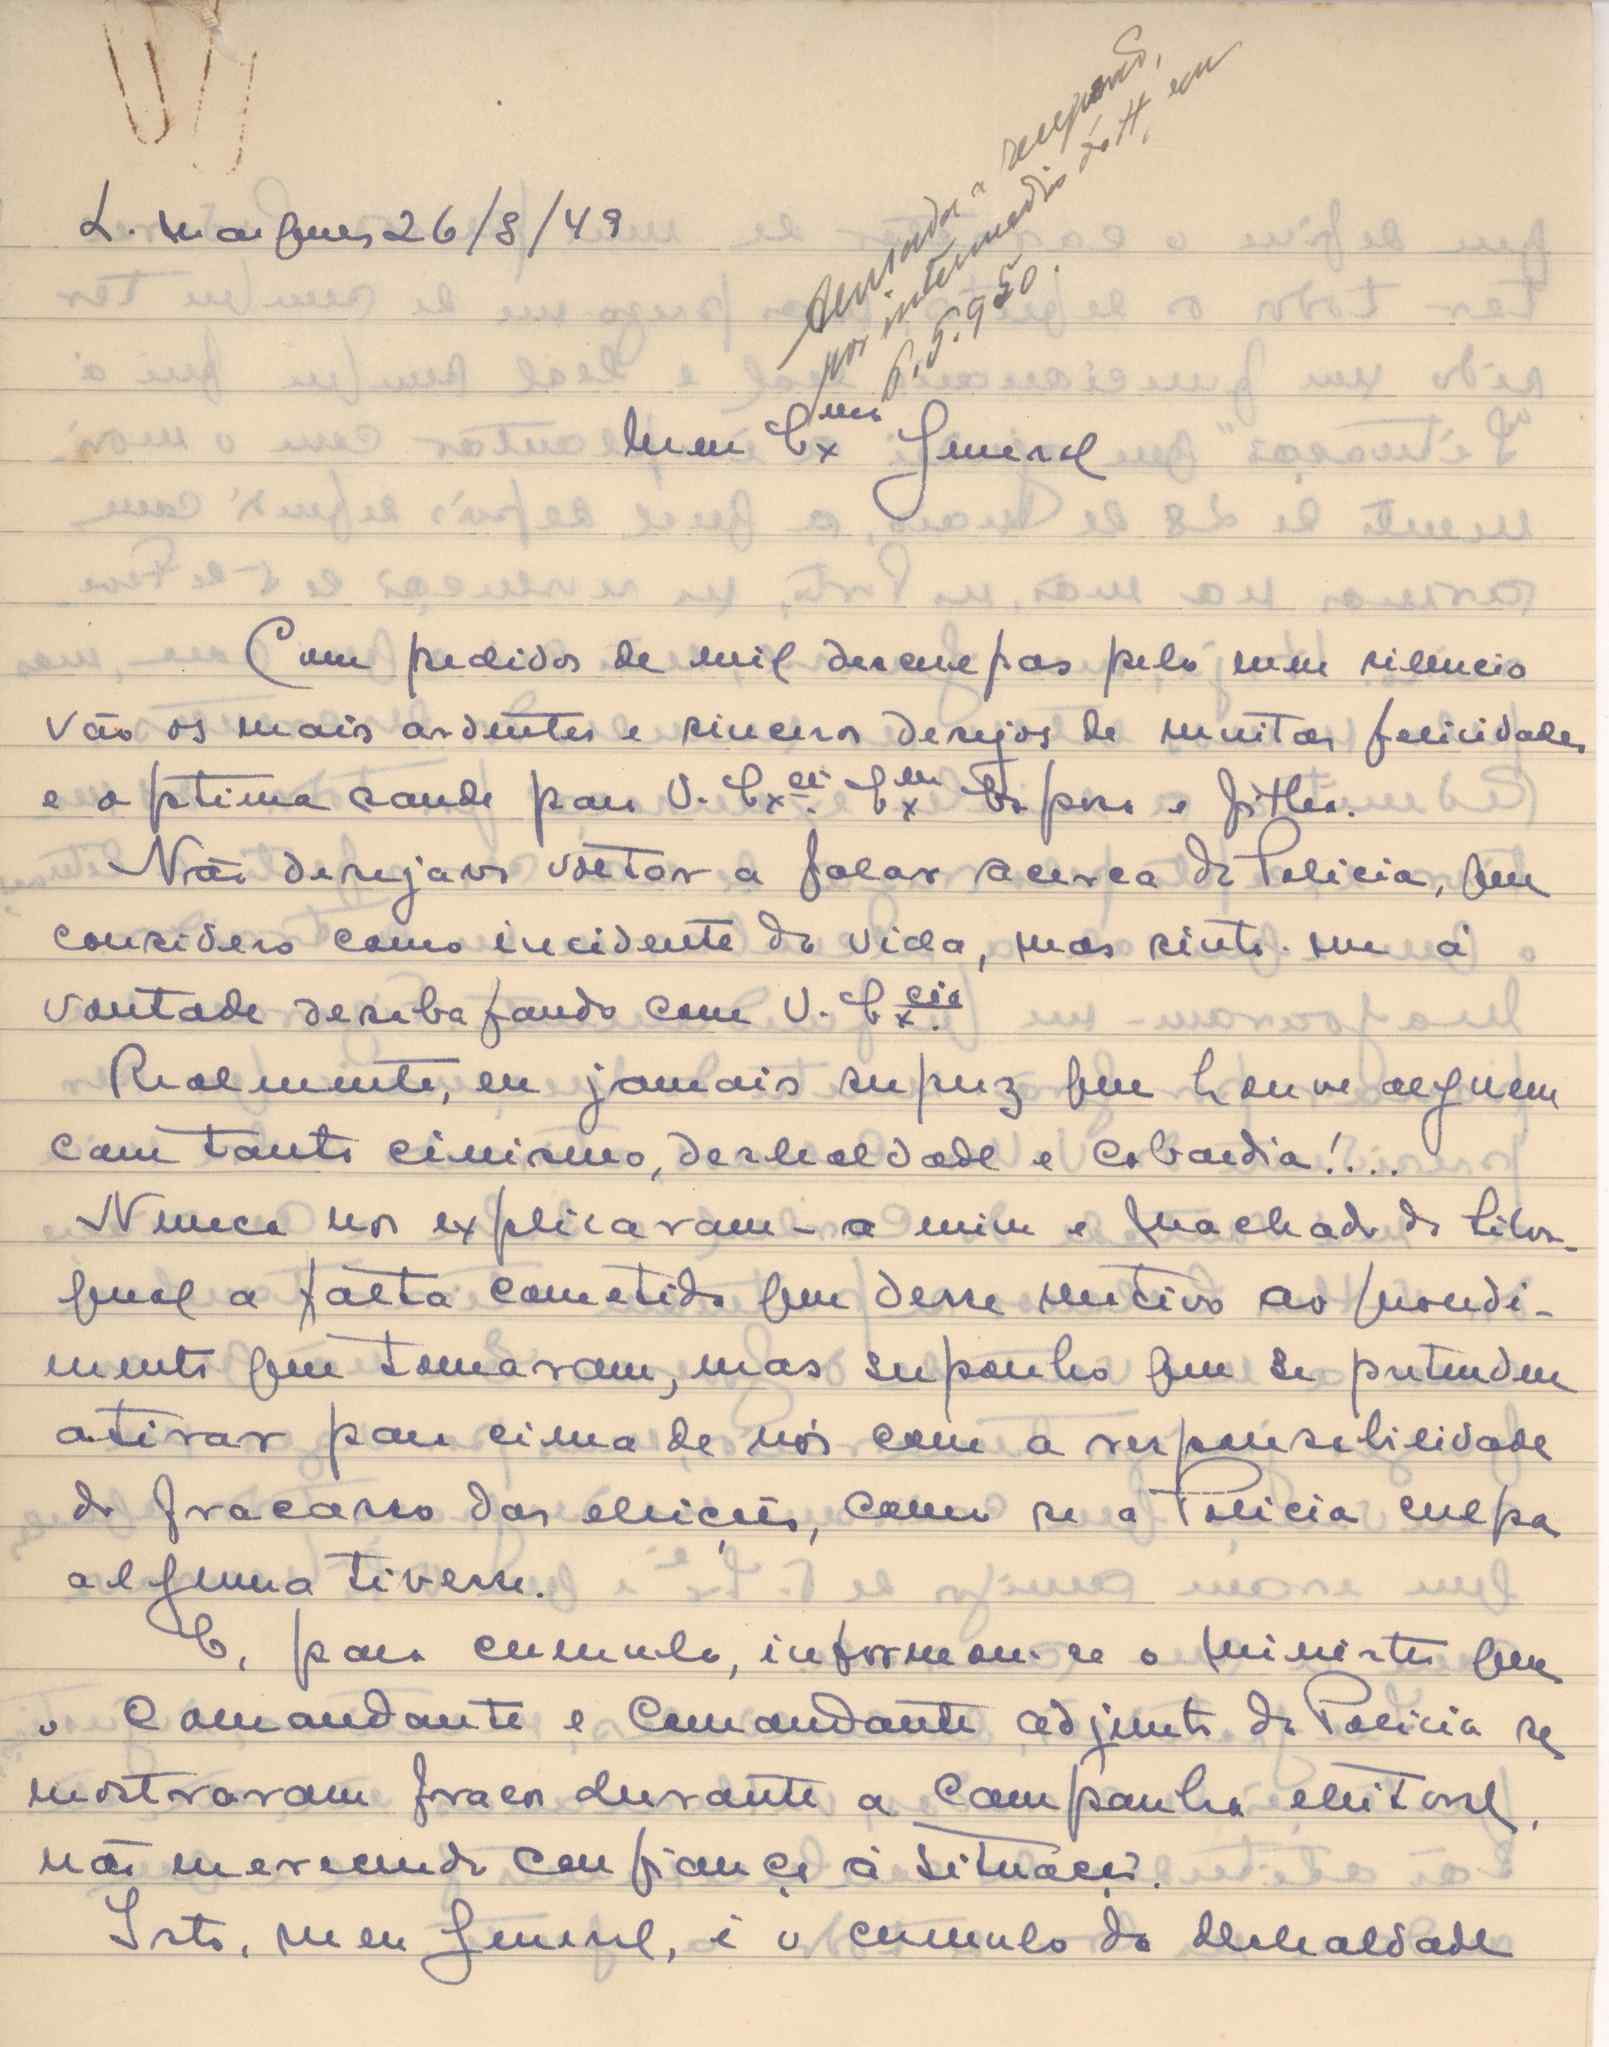 L. Marques 26/8/49
Mandada a resposta,
por intermedio do H, em
6.5.950.
Meu Exmo General
Com pedidos de mil desculpas pelo meu silencio
vão os mais ardentes e sinceros desejos de muitas felicidades
e optima saude para V. Excia. Exma Esposa e filhos.
Não desejava voltar a falar acerca da Policia, que
considero como incidente da vida, mas sinto-me á
vontade desabafando com V. Excia.
Realmente, eu jamais supuz que houve alguem
com tanto cinismo, deslealdade e cobardia!...
Nunca nos explicaram - a mim e Machado da Silva -
qual a falta cometida que desse motivo ao procedi-
mento que tomaram, mas suponho que se pretendem
atirar para cima de nós com a responsabilidade
do fracasso das eleições, como se a Policia culpa
alguma tivesse.
E, para cumulo, informou-se o Ministro que
o Comandante e Comandante adjunto da Policia se
mostraram fracos durante a Campanha eleitoral,
não merecendo confiança á situação.
Isto, meu General, é o cumulo da deslealdade